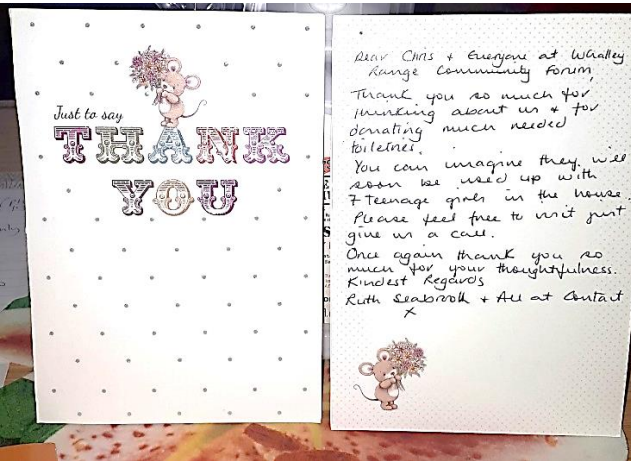 Just to say
THANK
YOU
Dear Chris + Everyone at Whalley
Range Community Forum,
Thank you so much for
thinking about us + for
donating much needed
toiletries.
You can imagine they will
soon be used up with
7 teenage girls in the house.
Please feel free to visit just
give us a call.
Once again thank you so
much for your thoughtfulness.
Kindest Regards
Ruth Seabrook + All at Contact
x